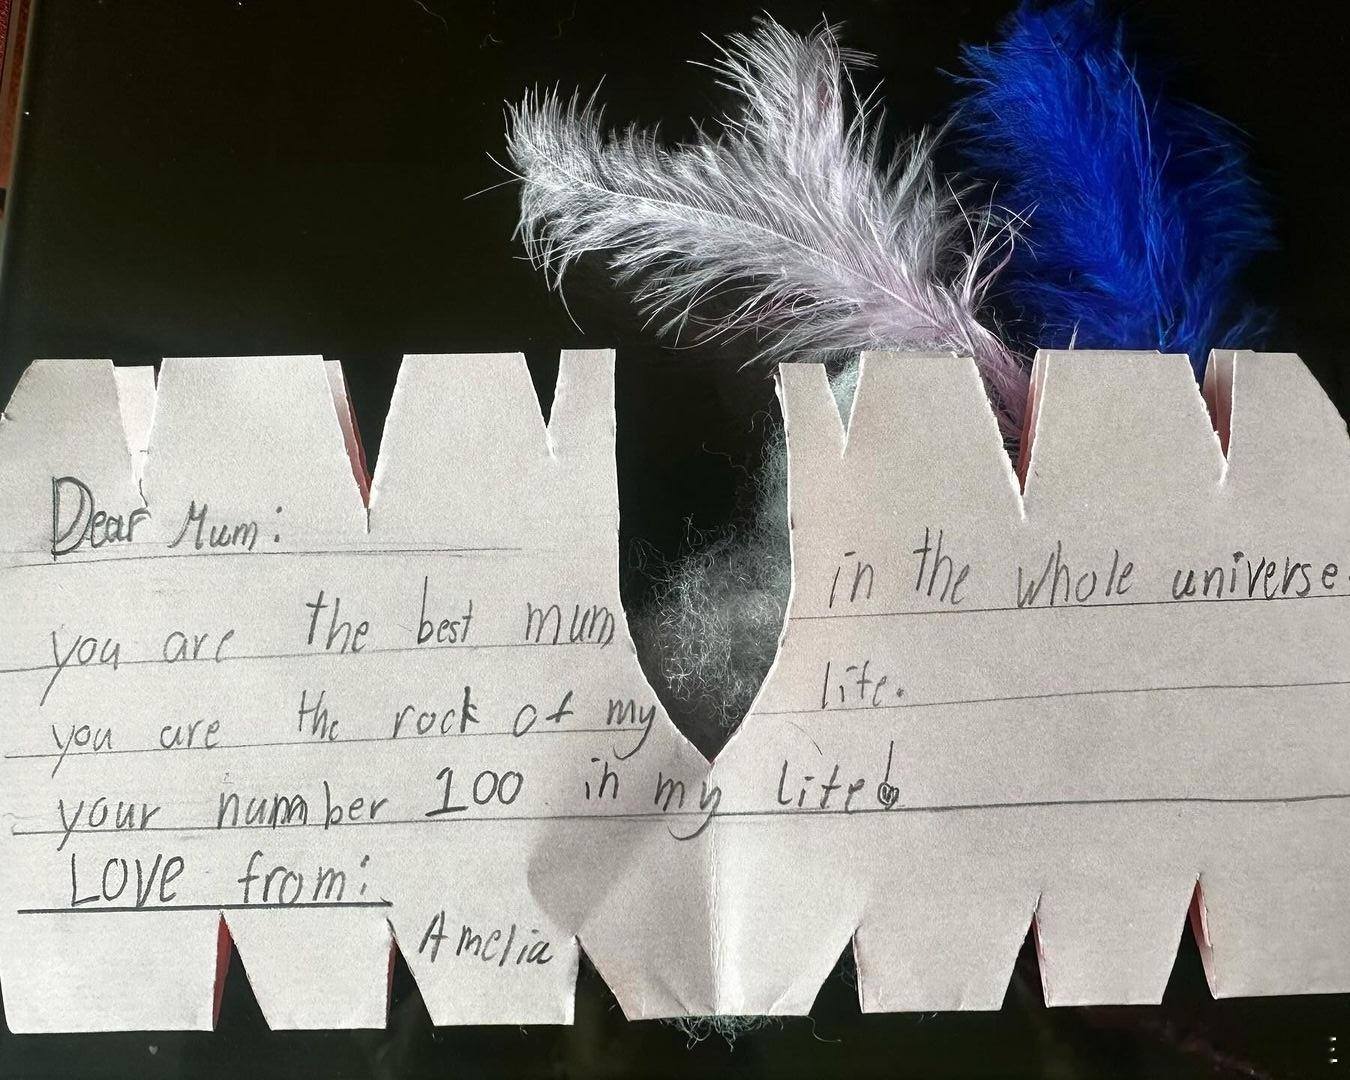 Dear Mum:
you are the best mum in the whole universe.
you are the rock of my life.
your number 100 in my life!
Love from:
Amelia